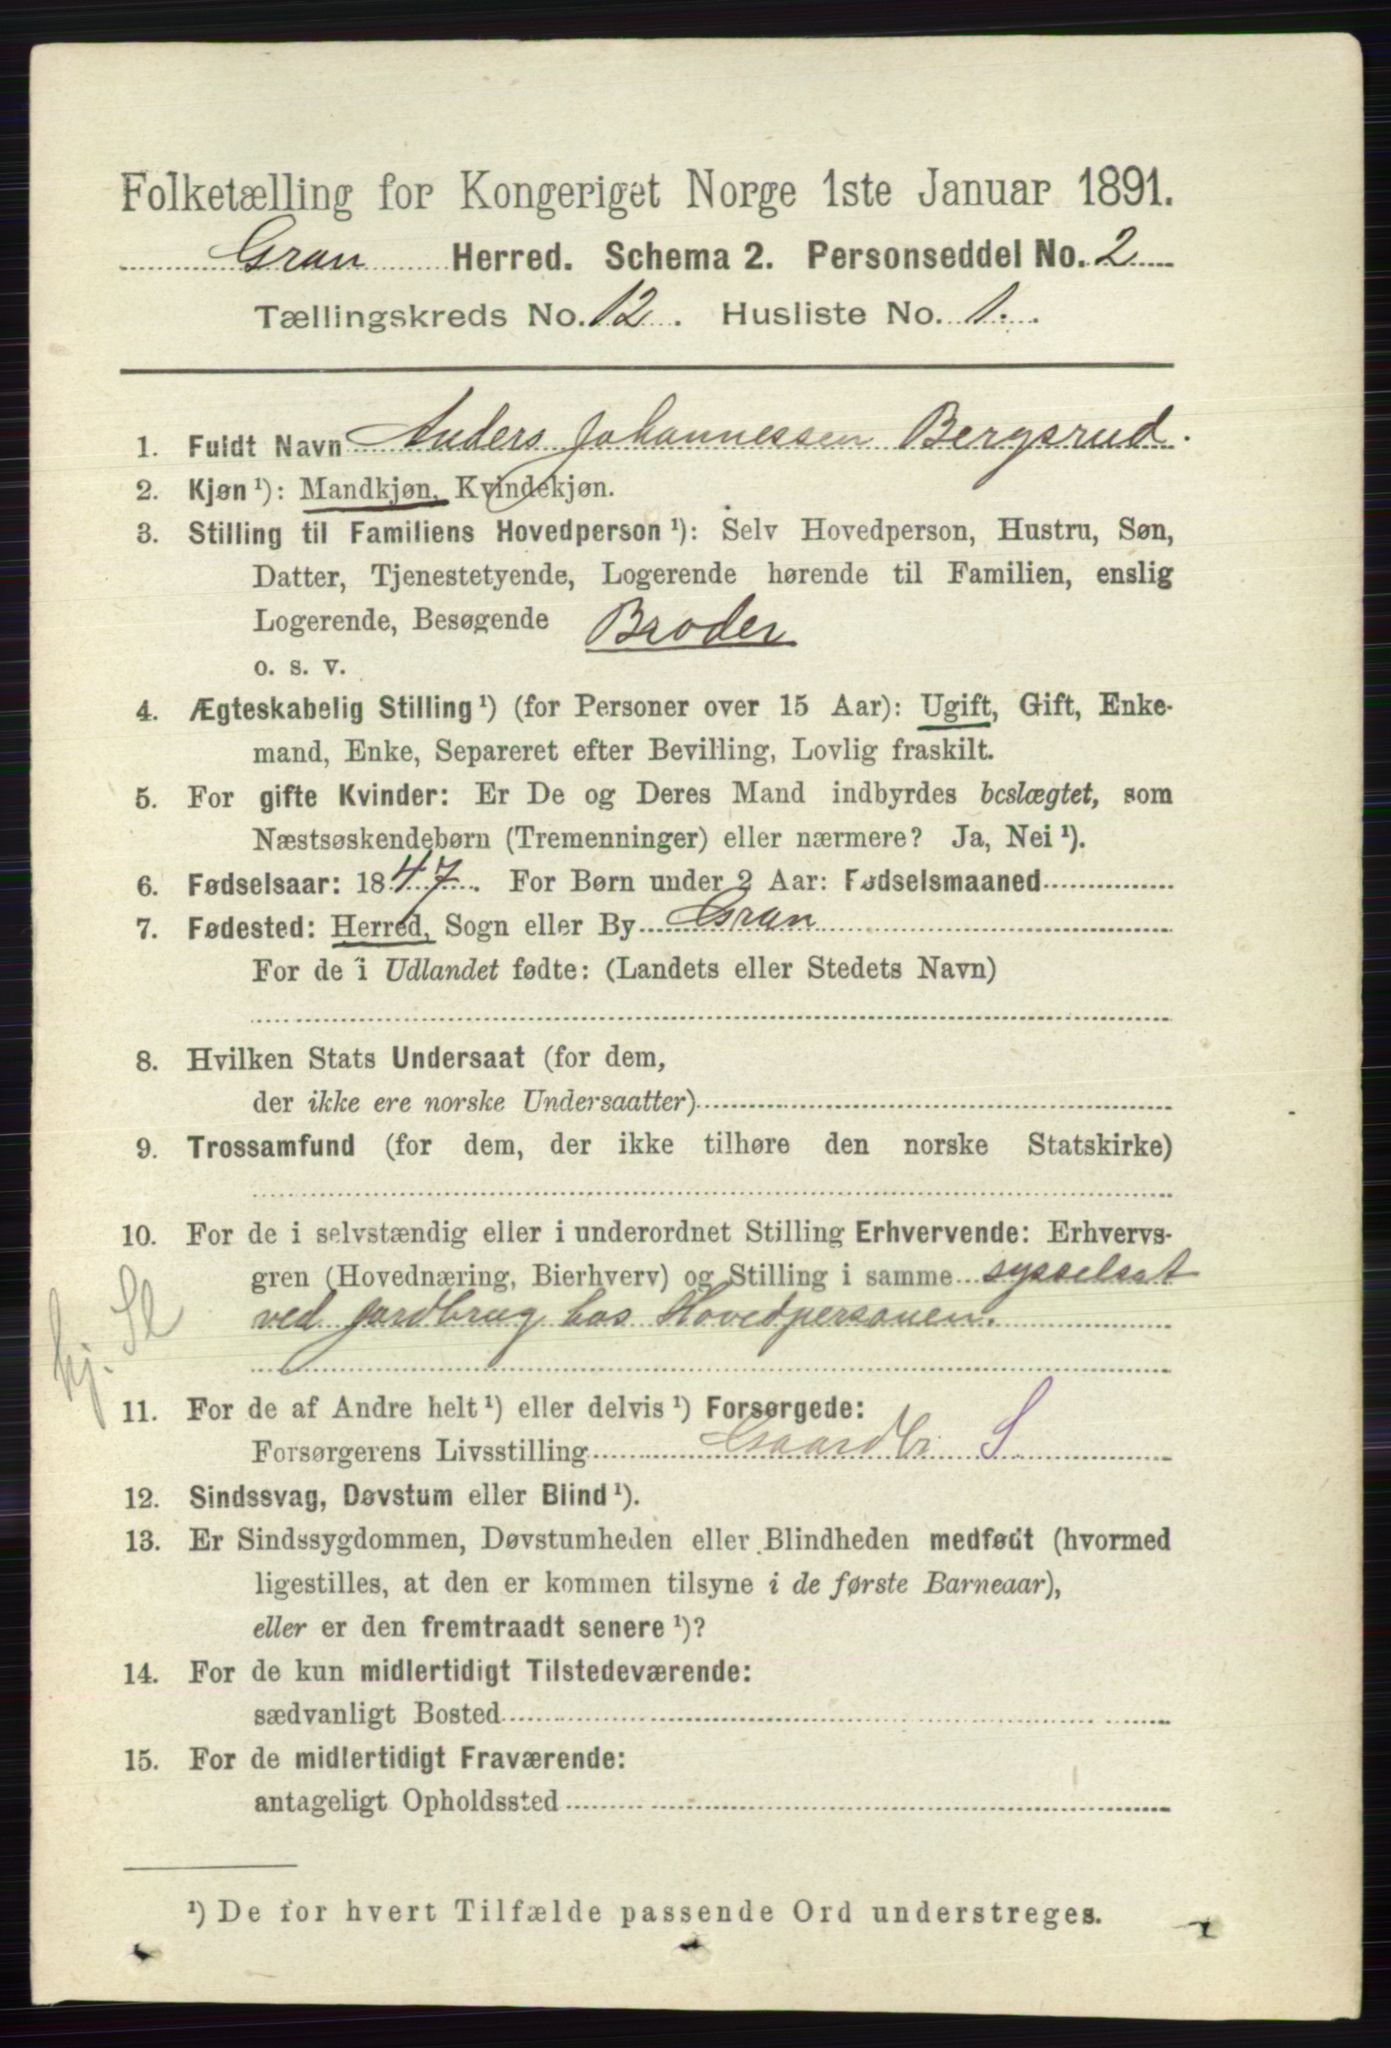 Folketælling for Kongeriget Norge 1ste Januar 1891.
Gran Herred. Schema 2. Personseddel No. 2
Tællingskreds No. 12. Husliste No. 1.
1. Fuldt Navn Anders Johannessen Bergsrud.
2. Kjøn ¹): Mandkjøn, Kvindekjøn.
3. Stilling til Familiens Hovedperson ¹): Selv Hovedperson, Hustru, Søn,
Datter, Tjenestetyende, Logerende hørende til Familien, enslig
Logerende, Besøgende Broder
o. s. v.
4. Ægteskabelig Stilling ¹) (for Personer over 15 Aar): Ugift, Gift, Enke-
mand, Enke, Separeret efter Bevilling, Lovlig fraskilt.
5. For gifte Kvinder: Er De og Deres Mand indbyrdes beslægtet, som
Næstsøskendebørn (Tremenninger) eller nærmere? Ja, Nei ¹).
6. Fødselsaar: 1847. For Børn under 2 Aar: Fødselsmaaned
7. Fødested: Herred, Sogn eller By Gran
For de i Udlandet fødte: (Landets eller Stedets Navn)
8. Hvilken Stats Undersaat (for dem,
der ikke ere norske Undersaatter)
9. Trossamfund (for dem, der ikke tilhøre den norske Statskirke)
10. For de i selvstændig eller i underordnet Stilling Erhvervende: Erhvervs-
gren (Hovednæring, Bierhverv) og Stilling i samme sysselsat
ved Jordbrug hos Hovedpersonen.
hj. Sl
11. For de af Andre helt ¹) eller delvis ¹) Forsørgede:
Forsørgerens Livsstilling Gaardbr S
12. Sindssvag, Døvstum eller Blind ¹).
13. Er Sindssygdommen, Døvstumheden eller Blindheden medfødt (hvormed
ligestilles, at den er kommen tilsyne i de første Barneaar),
eller er den fremtraadt senere ¹)?
14. For de kun midlertidigt Tilstedeværende:
sædvanligt Bosted
15. For de midlertidigt Fraværende:
antageligt Opholdssted
¹) De for hvert Tilfælde passende Ord understreges.